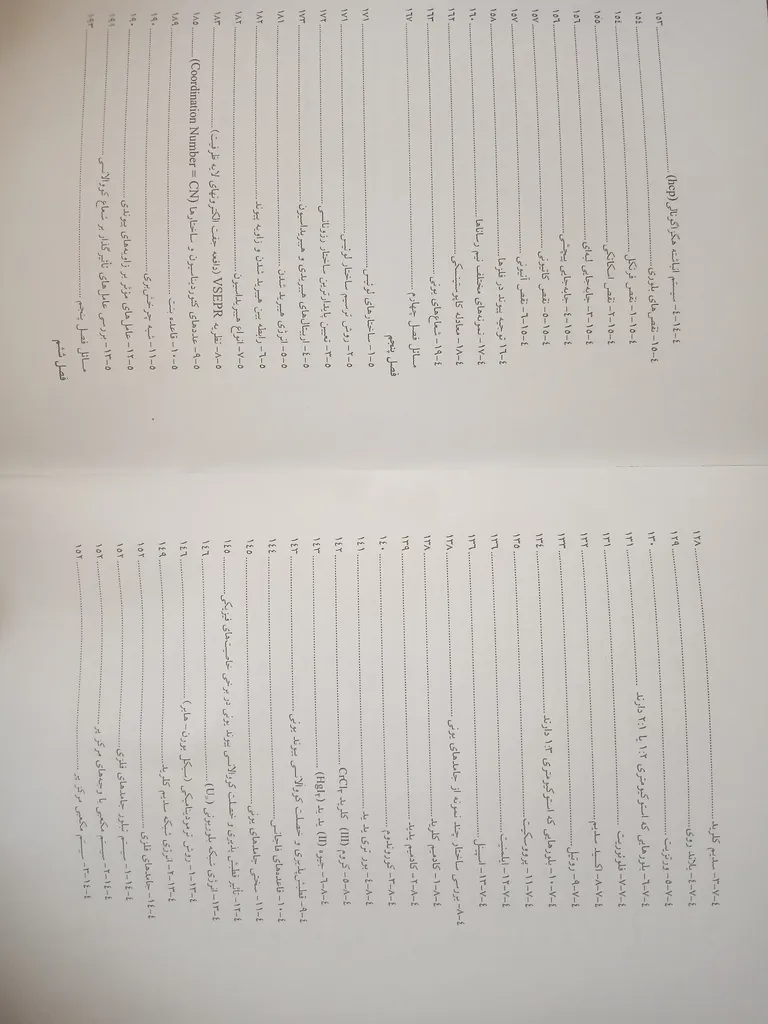 ۴-۷-۳- سدیم کلرید ........ ۱۲۸
۴-۷-۴- بلاند روی ........ ۱۲۹
۴-۷-۵- وورتزیت ........ ۱۳۰
۴-۷-۶- بلورهایی که استوکیومتری ۱:۲ یا ۲:۱ دارند ........ ۱۳۱
۴-۷-۷- فلوئوریت ........ ۱۳۱
۴-۷-۸- اکسید سدیم ........ ۱۳۲
۴-۷-۹- روتیل ........ ۱۳۳
۴-۷-۱۰- بلورهایی که استوکیومتری ۱:۳ دارند ........ ۱۳۴
۴-۷-۱۱- پروسکیت ........ ۱۳۵
۴-۷-۱۲- ایلمنیت ........ ۱۳۶
۴-۷-۱۳- اسپینل ........ ۱۳۶
۴-۸- بررسی ساختار چند نمونه از جامدهای یونی ........ ۱۳۸
۴-۸-۱- کادمیم کلرید ........ ۱۳۸
۴-۸-۲- کادمیم یدید ........ ۱۳۹
۴-۸-۳- کوروندوم ........ ۱۴۰
۴-۸-۴- بور تری یدید ........ ۱۴۱
۴-۸-۵- کروم (III) کلرید CrCl₃ ........ ۱۴۲
۴-۸-۶- جیوه (II) یدید (HgI₂) ........ ۱۴۳
۴-۹- قطبش‌پذیری و خصلت کووالانسی پیوند یونی ........ ۱۴۳
۴-۱۰- قاعده‌های فاجانس ........ ۱۴۴
۴-۱۱- سختی جامدهای یونی ........ ۱۴۵
۴-۱۲- تأثیر قطبش پذیری و خصلت کووالانسی پیوند یونی در برخی خاصیت‌های فیزیکی ........ ۱۴۵
۴-۱۳- انرژی شبکه بلور یونی (U₀) ........ ۱۴۶
۴-۱۳-۱- روش ترمودینامیکی (سیکل بورن - هابر) ........ ۱۴۶
۴-۱۳-۲- انرژی شبکه سدیم کلرید ........ ۱۴۹
۴-۱۴- جامدهای فلزی ........ ۱۵۲
۴-۱۴-۱- سیستم تبلور جامدهای فلزی ........ ۱۵۲
۴-۱۴-۲- سیستم مکعبی با وجه‌های مرکز پر ........ ۱۵۲
۴-۱۴-۳- سیستم مکعبی مرکز پر ........ ۱۵۲
۴-۱۴-۴- سیستم انباشته هگزاگونالی (hcp) ........ ۱۵۳
۴-۱۵- نقص‌های بلوری ........ ۱۵۴
۴-۱۵-۱- نقص فرنکل ........ ۱۵۴
۴-۱۵-۲- نقص اسکاتکی ........ ۱۵۵
۴-۱۵-۳- جابه‌جایی لبه‌ای ........ ۱۵۶
۴-۱۵-۴- جابه‌جایی پیچشی ........ ۱۵۶
۴-۱۵-۵- نقص کاتیونی ........ ۱۵۷
۴-۱۵-۶- نقص آنیونی ........ ۱۵۷
۴-۱۶ توجیه پیوند در فلزها ........ ۱۵۸
۴-۱۷- نمونه‌های مختلف نیم رساناها ........ ۱۶۰
۴-۱۸- معادله کاپوستینسکی ........ ۱۶۲
۴-۱۹- شعاع‌های یونی ........ ۱۶۳
مسائل فصل چهارم ........ ۱۶۷
فصل پنجم
۵-۱- ساختارهای لوئیس ........ ۱۷۱
۵-۲- روش ترسیم ساختار لوئیس ........ ۱۷۱
۵-۳- تعیین پایدارترین ساختار رزونانسی ........ ۱۷۲
۵-۴- اربیتال‌های هیبریدی و هیبریداسیون ........ ۱۷۳
۵-۵- انرژی هیبرید شدن ........ ۱۸۱
۵-۶- رابطه بین هیبرید شدن و زاویه پیوند ........ ۱۸۲
۵-۷- انواع هیبریداسیون ........ ۱۸۲
۵-۸- نظریه VSEPR (دافعه جفت الکترونهای لایه ظرفیت) ........ ۱۸۳
۵-۹- عددهای کئوردیناسیون و ساختارها (Coordination Number = CN) ........ ۱۸۵
۵-۱۰- قاعده بنت ........ ۱۸۹
۵-۱۱- شبه چرخش‌بری ........ ۱۹۰
۵-۱۲- عامل‌های مؤثر بر زاویه‌های پیوندی ........ ۱۹۰
۵-۱۳- بررسی عامل‌های تأثیر گذار بر شعاع کووالانسی ........ ۱۹۱
مسائل فصل پنجم ........ ۱۹۳
فصل ششم